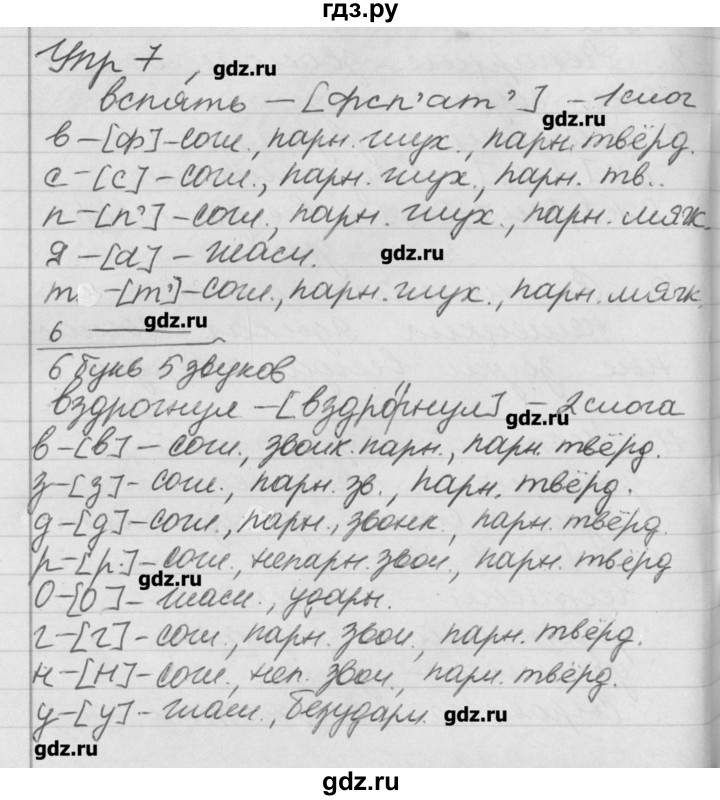 гдз.ру
Упр 7
gdz.ru
вспять – [фсп'ат'] – 1 слог
gdz.ru
в – [ф] – согл., парн. глух., парн. твёрд.
с – [с] – согл., парн. глух., парн. тв..
п – [п'] – согл., парн. глух., парн. мягк.
я – [а] – гласн.
gdz.ru
т – [т'] – согл., парн. глух., парн. мягк.
gdz.ru
ь –
6 букв 5 звуков
вздрогнул – [вздрогнул] – 2 слога
gdz.ru
в – [в] – согл., звонк. парн., парн. твёрд.
з – [з] – согл., парн. зв., парн. твёрд.
д – [д] – согл., парн., звонк., парн. твёрд.
р – [р] – согл., непарн. звон., парн. твёрд
gdz.ru
о – [о] – гласн., ударн.
г – [г] – согл., парн. звон., парн. твёрд.
н – [н] – согл., неп. звон., парн. твёрд.
у – [у] – гласн., безударн.
gdz.ru
gdz.ru
gdz.ru